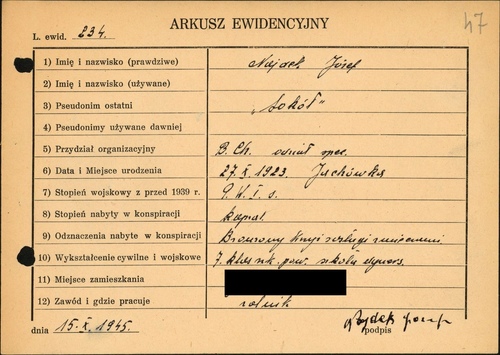 47
ARKUSZ EWIDENCYJNY
L. ewid. 234.
1) Imię i nazwisko (prawdziwe) Józef
2) Imię i nazwisko (używane)
3) Pseudonim ostatni "Sokół"
4) Pseudonimy używane dawniej
5) Przydział organizacyjny B.Ch. oddział spec.
6) Data i Miejsce urodzenia 27.X.1923. Jachówka
7) Stopień wojskowy z przed 1939 r.
8) Stopień nabyty w konspiracji kapral
9) Odznaczenia nabyte w konspiracji Bronzowy Krzyż zasługi z mieczami
10) Wykształcenie cywilne i wojskowe 7. klas
11) Miejsce zamieszkania
12) Zawód i gdzie pracuje rolnik
dnia 15.X.1945.
podpis